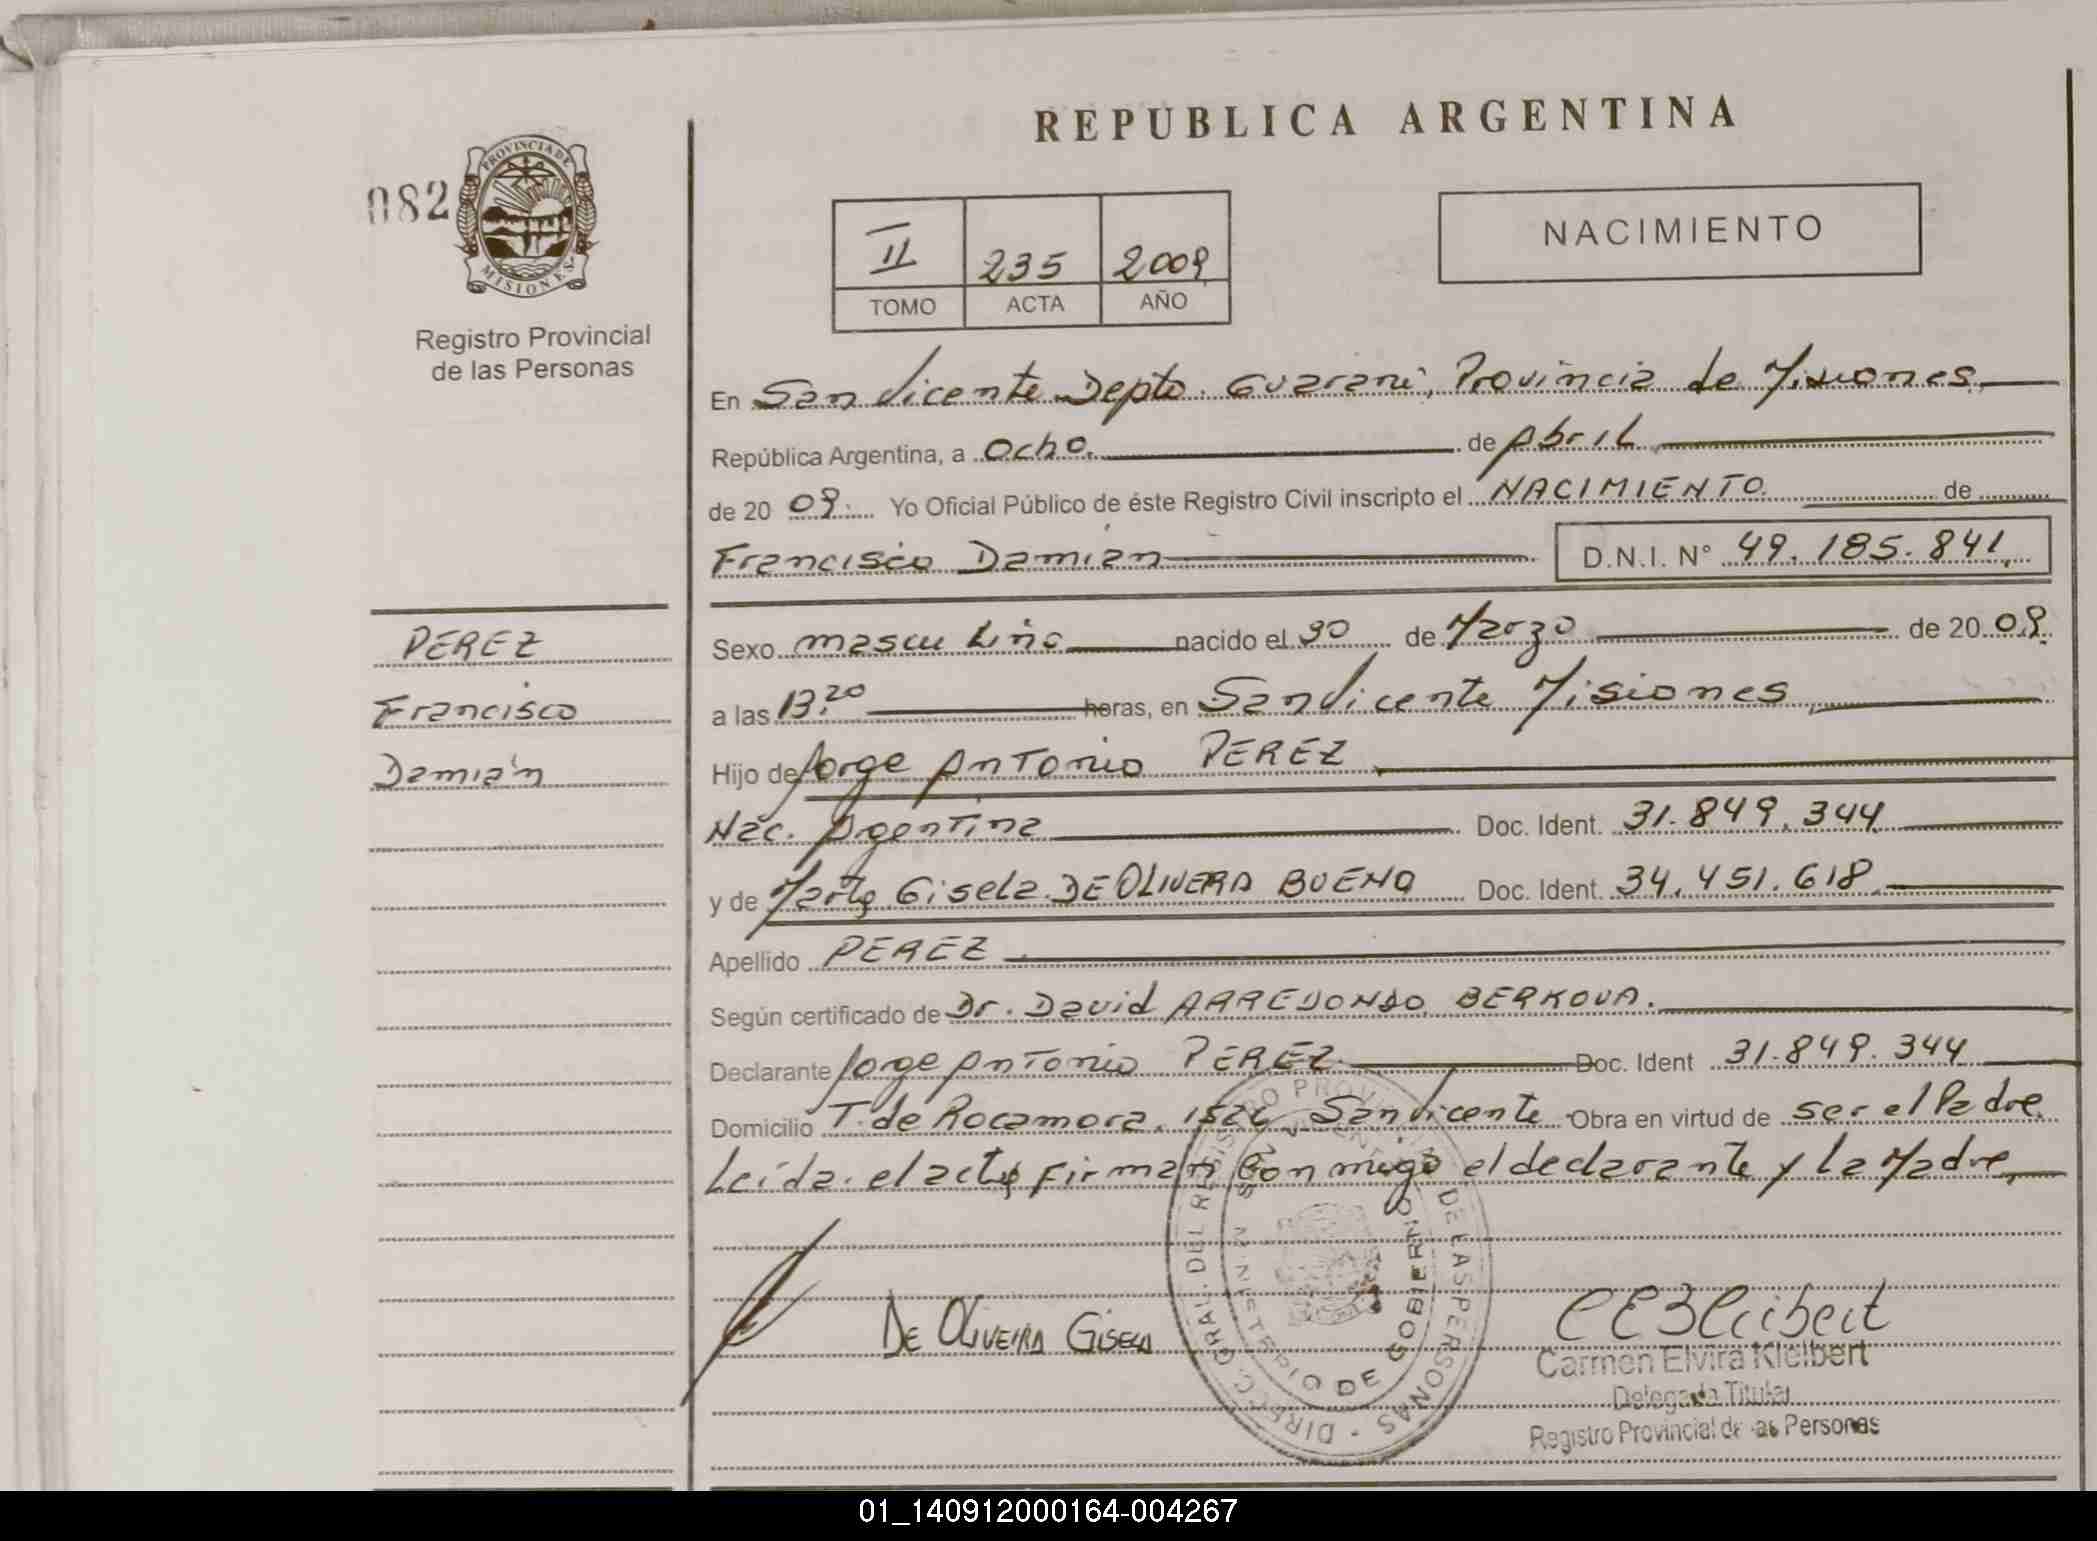 REPUBLICA ARGENTINA
082
PROVINCIA DE
MISIONES
Registro Provincial
de las Personas
II 235 2009
TOMO ACTA AÑO
NACIMIENTO
En San Vicente Depto. Guaraní, Provincia de Misiones
República Argentina, a Ocho. de Abril
de 20 09. Yo Oficial Público de éste Registro Civil inscripto el NACIMIENTO. de
Francisco Damián D.N.I. N° 49.185.841
PEREZ
Francisco
Damián
Sexo masculino nacido el 30 de Marzo de 20 09.
a las 13.20 horas, en San Vicente Misiones
Hijo de Jorge Antonio PEREZ
Nac. Argentina Doc. Ident. 31.849.344
y de Marta Gisela DE OLIVERA BUENO Doc. Ident. 34.451.618
Apellido PEREZ
Según certificado de Dr. David ARREDONDO BERKOVA.
Declarante Jorge Antonio PEREZ Doc. Ident 31.849.344
Domicilio T. de Rocamora. San Vicente Obra en virtud de ser el Padre
Leída el acta firman conmigo el declarante y la Madre
DE OLIVEIRA GISELA
DIREC. GRAL. DEL REGISTRO PROVINCIAL DE LAS PERSONAS
MINISTERIO DE GOBIERNO
Carmen Elvira Kleibert
Delegada Titular
Registro Provincial de las Personas
01_140912000164-004267